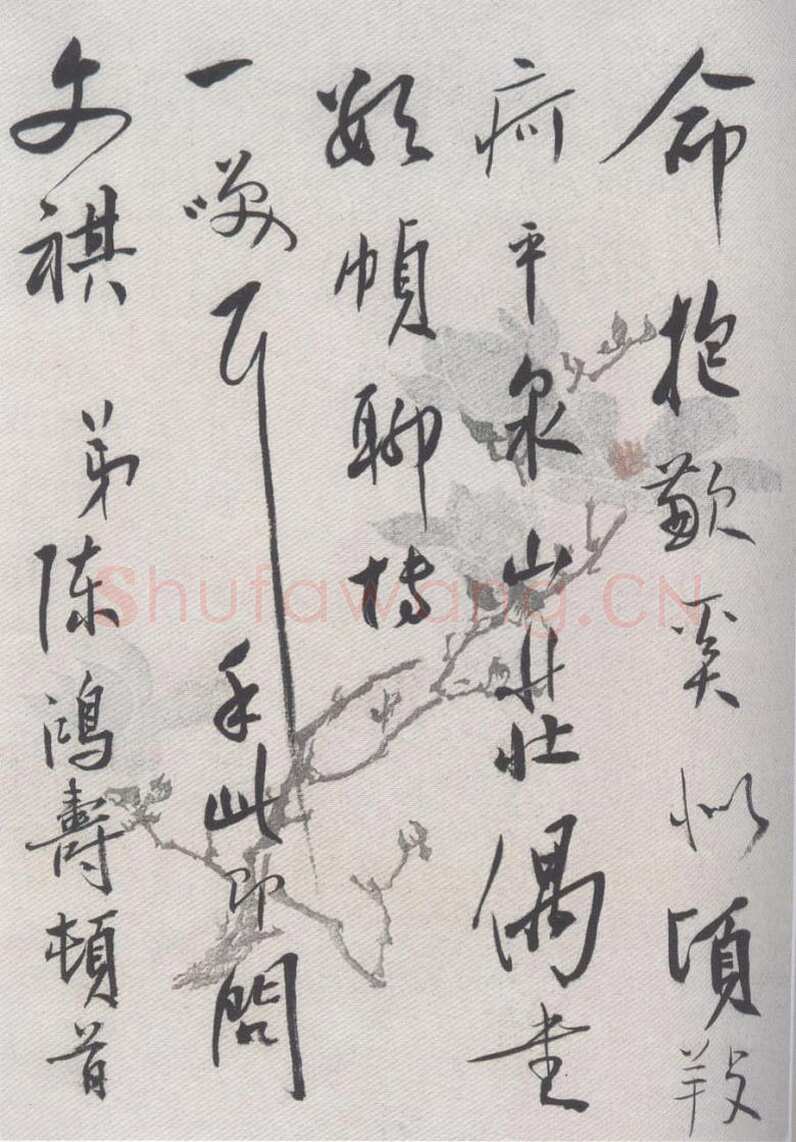 命抱歉奚似頃𢼝
疴平泉山莊偶畫
數幀聊博
一咲耳 手此即問
文祺 弟陳鴻壽頓首
Shufawang.CN